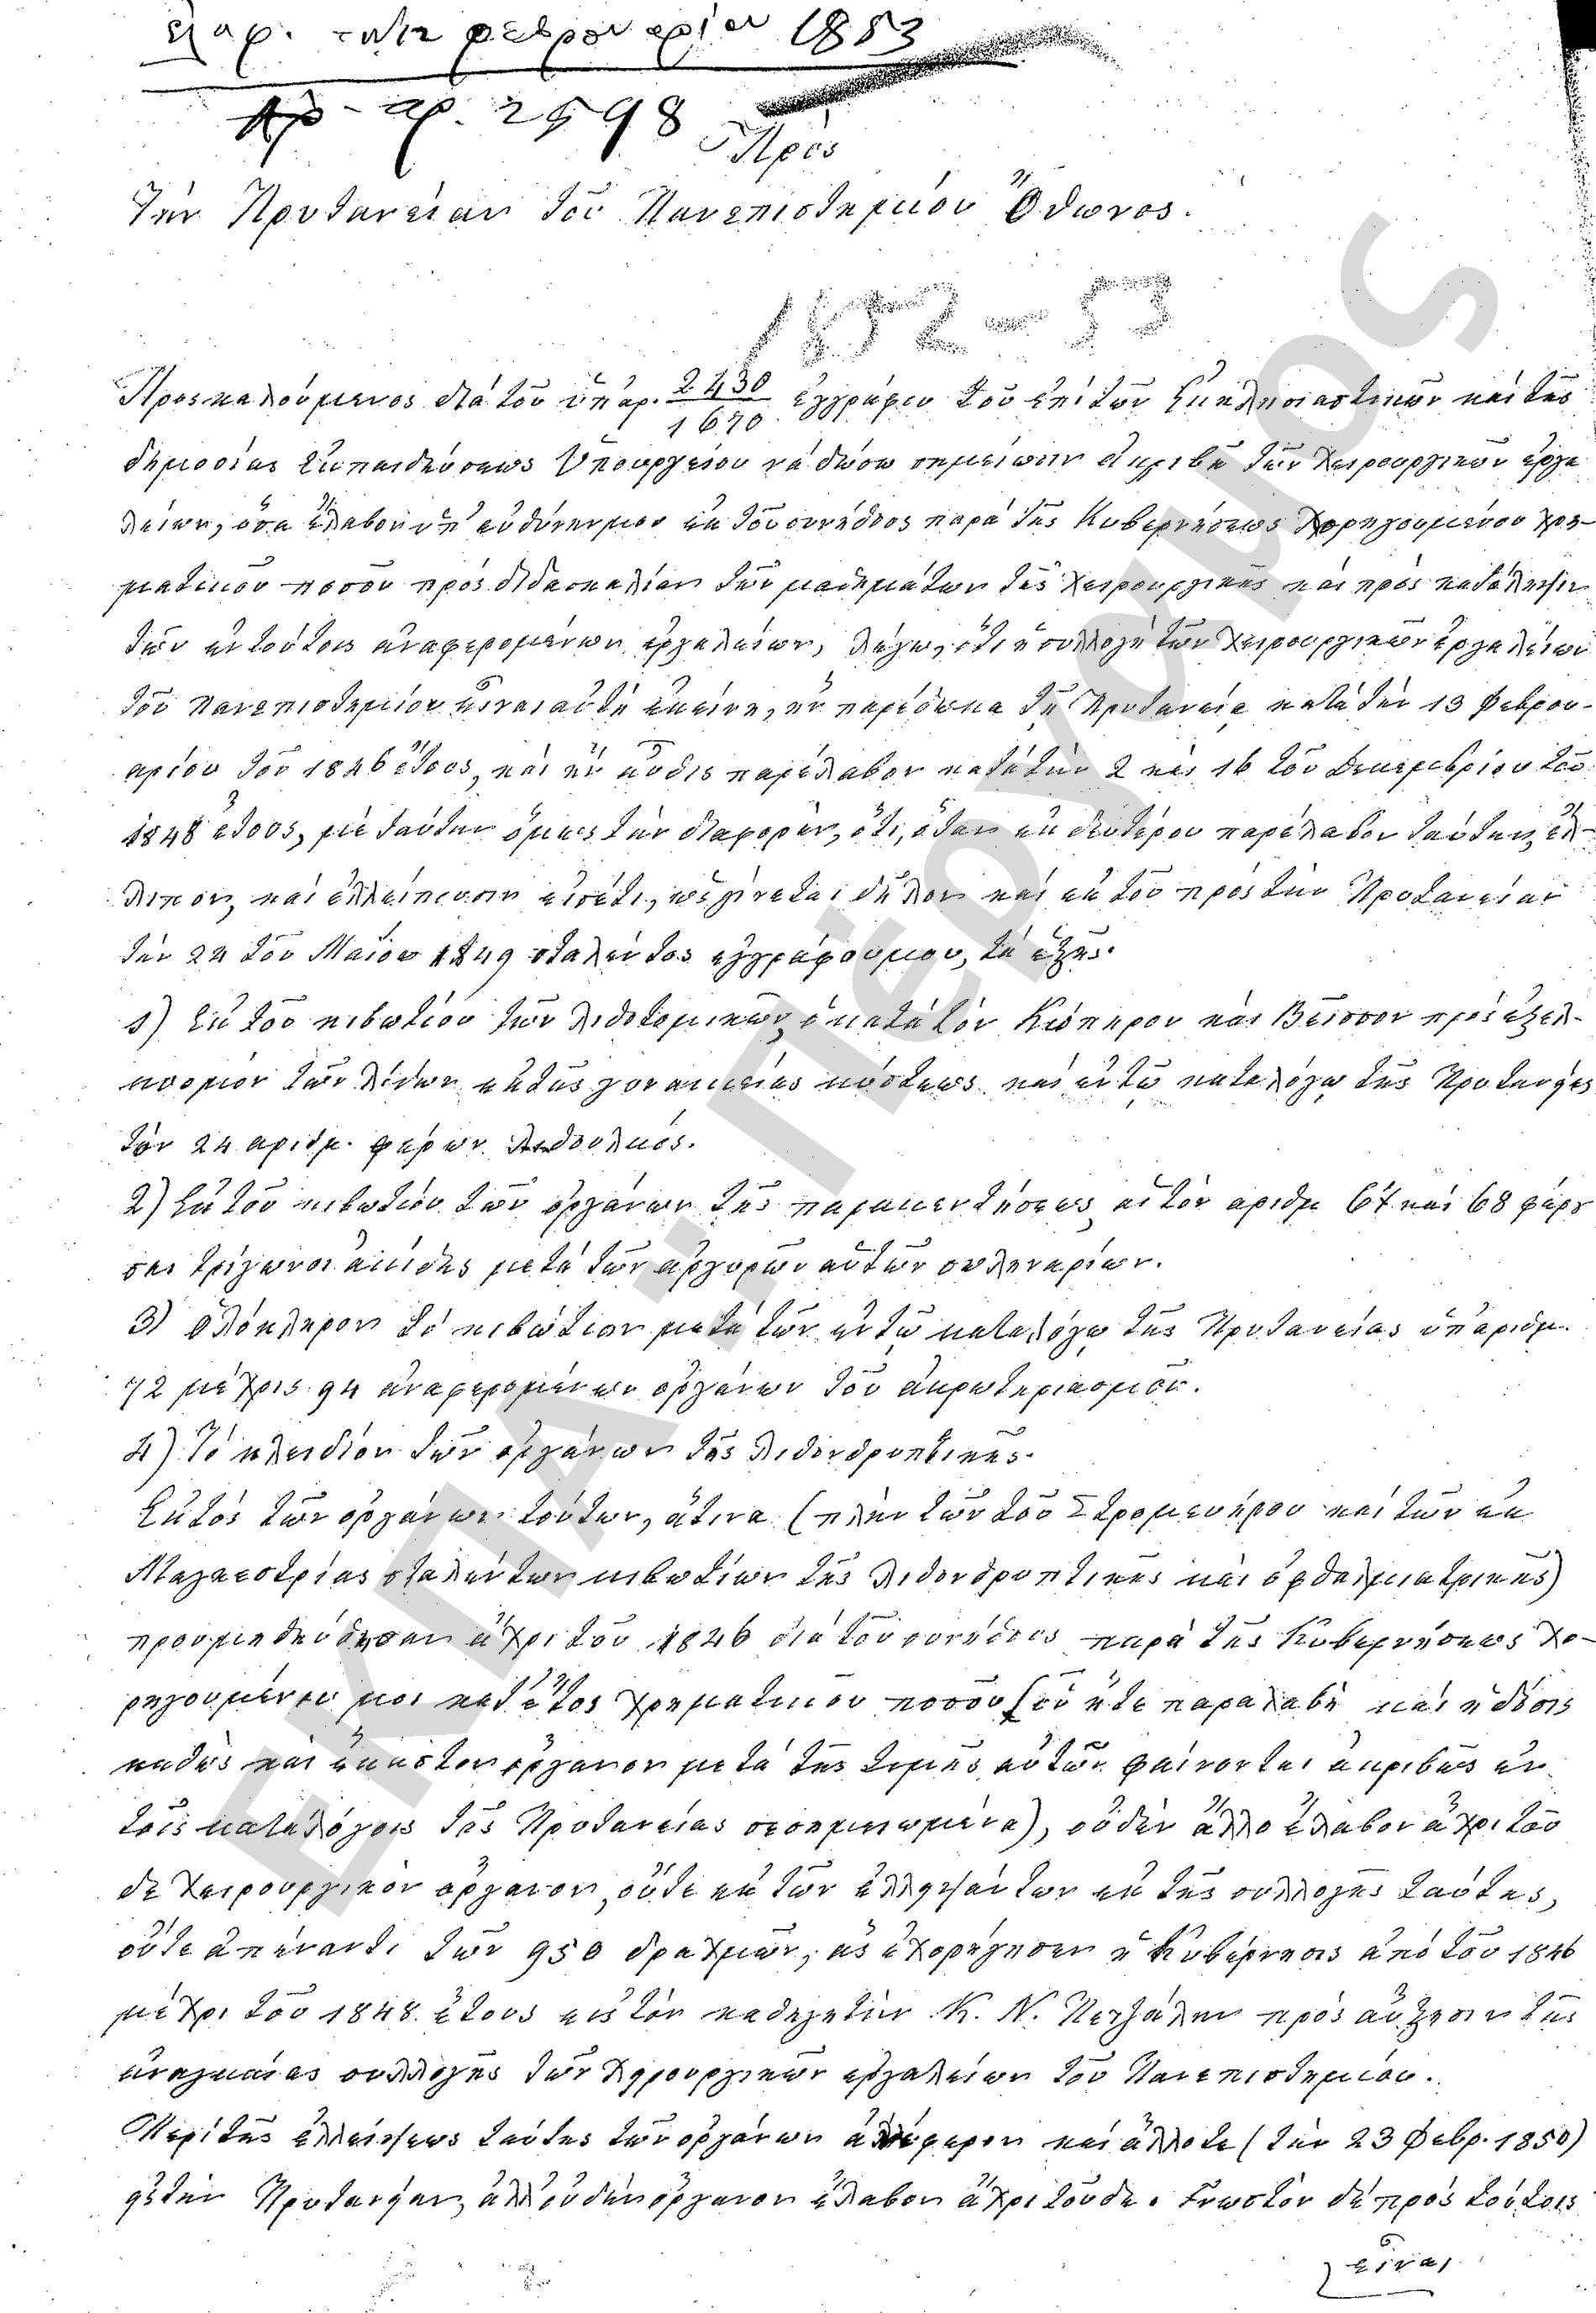 Αρ. 2598
Πρὸς
Τὴν Πρυτανείαν τοῦ Πανεπιστημίου Ὄθωνος.
1852-53
Προσκαλούμενος διὰ τοῦ ὑπ' ἀρ. 2430/1670 ἐγγράφου τοῦ ἐπὶ τῶν Ἐκκλησιαστικῶν καὶ τῆς
δημοσίας ἐκπαιδεύσεως Ὑπουργείου νὰ δώσω σημείωσιν ἀκριβῆ τῶν χειρουργικῶν ἐργα
λείων, ὅσα ἔλαβον ὑπ' εὐθύνην μου ἐκ τοῦ συνήθους παρὰ τῆς Κυβερνήσεως χορηγουμένου χρη-
ματικοῦ ποσοῦ πρὸς διδασκαλίαν τῶν μαθημάτων τῆς χειρουργικῆς καὶ πρὸς κατάληψιν
τῶν ἐν τούτοις ἀναφερομένων ἐργαλείων, λέγω, ὅτι ἡ συλλογὴ τῶν χειρουργικῶν ἐργαλείων
τοῦ Πανεπιστημίου εἶναι αὐτὴ ἐκείνη, ἣν παρέδωκα τῇ Πρυτανείᾳ κατὰ τὴν 13 Φεβρου-
αρίου τοῦ 1846 ἔτους, καὶ ἣν αὖθις παρέλαβον κατὰ τὴν 2 καὶ 16 τοῦ Δεκεμβρίου τοῦ
1848 ἔτους, μὲ ταύτην ὅμως τὴν διαφορὰν, ὅτι, ὅταν ἐκ δευτέρου παρέλαβον ταύτην, ἔλ-
λιπον, καὶ ἐλλείπουσιν εἰσέτι, ὡς γίνεται δῆλον καὶ ἐκ τοῦ πρὸς τὴν Πρυτανείαν
τὴν 24 τοῦ Μαΐου 1849 σταλέντος ἐγγράφου μου, τὰ ἑξῆς.
1) Ἐκ τοῦ κιβωτίου τῶν λιθοτομικῶν, ὁ κατὰ τὸν Κούπερον καὶ Βεῖσσον πρὸς ἐξελ-
κυσμὸν τῶν λίθων ἐκ τῆς γυναικείας κύστεως καὶ ἐν τῷ καταλόγῳ τῆς Πρυτανείας
τὸν 24 ἀριθμ. φέρων λιθουλκός.
2) Ἐκ τοῦ κιβωτίου τῶν ὀργάνων τῆς παρακεντήσεως, αἱ τὸν ἀριθμ 67 καὶ 68 φέρου
σαι τρίγωνοι ἀκίδες μετὰ τῶν ἀργυρῶν αὐτῶν σωληναρίων.
3) Ὁλόκληρον τὸ κιβώτιον μετὰ τῶν ἐν τῷ καταλόγῳ τῆς Πρυτανείας ὑπ' ἀριθμ.
72 μέχρις 94 ἀναφερομένων ὀργάνων τοῦ ἀκρωτηριασμοῦ.
4) Τὸ κλειδίον τῶν ὀργάνων τῆς λιθονθρυπτικῆς.
Ἐκτὸς τῶν ὀργάνων τούτων, ἅτινα (πλὴν τῶν τοῦ Στρομευήρου καὶ τῶν ἐκ
Μασσαστρίας σταλέντων κιβωτίων τῆς λιθονθρυπτικῆς καὶ ὀφθαλμιατρικῆς)
προυμηθεύθησαν ἄχρι τοῦ 1846 διὰ τοῦ συνήθους παρὰ τῆς Κυβερνήσεως χο-
ρηγουμένου μοι κατ' ἔτος χρηματικοῦ ποσοῦ (οὗ ἥτε παραλαβὴ καὶ ἡ δόσις
καθὼς καὶ ἕκαστον ὄργανον μετὰ τῆς τιμῆς αὐτῶν φαίνονται ἀκριβῶς ἐν
τοῖς καταλόγοις τῆς Πρυτανείας σεσημειωμένα), οὐδὲν ἄλλο ἔλαβον ἄχρι τοῦ
δε χειρουργικὸν ὄργανον, οὔτε ἐκ τῶν ἐλλειψάντων ἐκ τῆς συλλογῆς ταύτης,
οὔτε ἀπέναντι τῶν 950 δραχμῶν, ἃς ἐχορήγησεν ἡ Κυβέρνησις ἀπὸ τοῦ 1846
μέχρι τοῦ 1848 ἔτους εἰς τὸν καθηγητὴν Κ. Ν. Πετσάλην πρὸς αὔξησιν τῆς
ἀναγκαίας συλλογῆς τῶν χειρουργικῶν ἐργαλείων τοῦ Πανεπιστημίου.
Περὶ τῆς ἐλλείψεως ταύτης τῶν ὀργάνων ἀνέφερον καὶ ἄλλοτε (τὴν 23 Φεβρ. 1850)
εἰς τὴν Πρυτανείαν, ἀλλ' οὐδὲν ὄργανον ἔλαβον ἄχρι τοῦδε. Γνωστὸν δὲ πρὸς τούτοις
εἶναι
ΕΚΠΑ